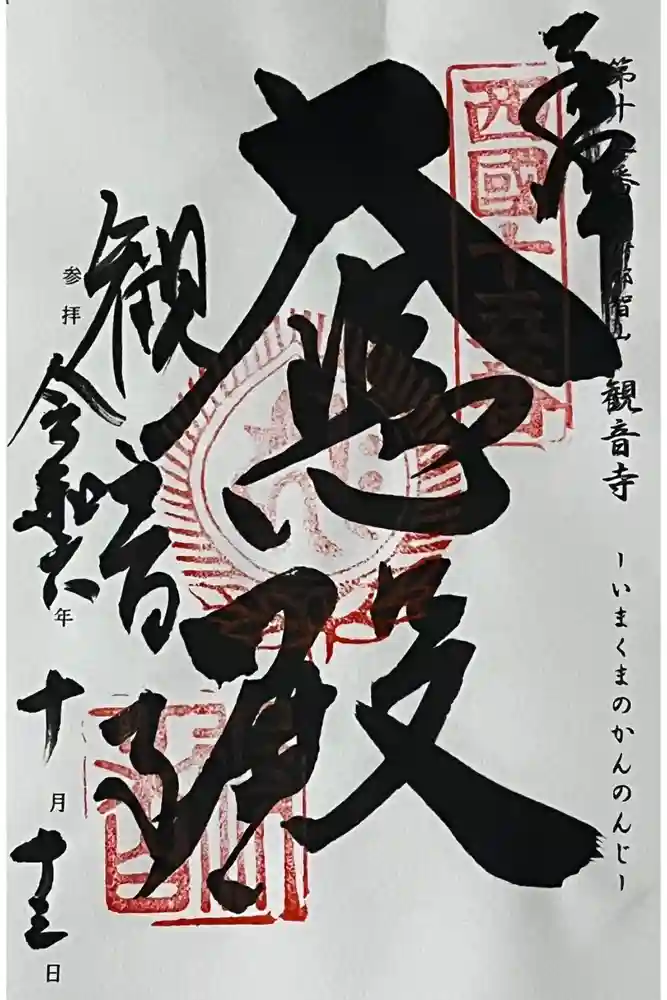 奉
第十五番 新那智山 観音寺
ーいまくまのかんのんじー
西國十五番
大悲殿
観音寺
参拝
令和六年十月十三日